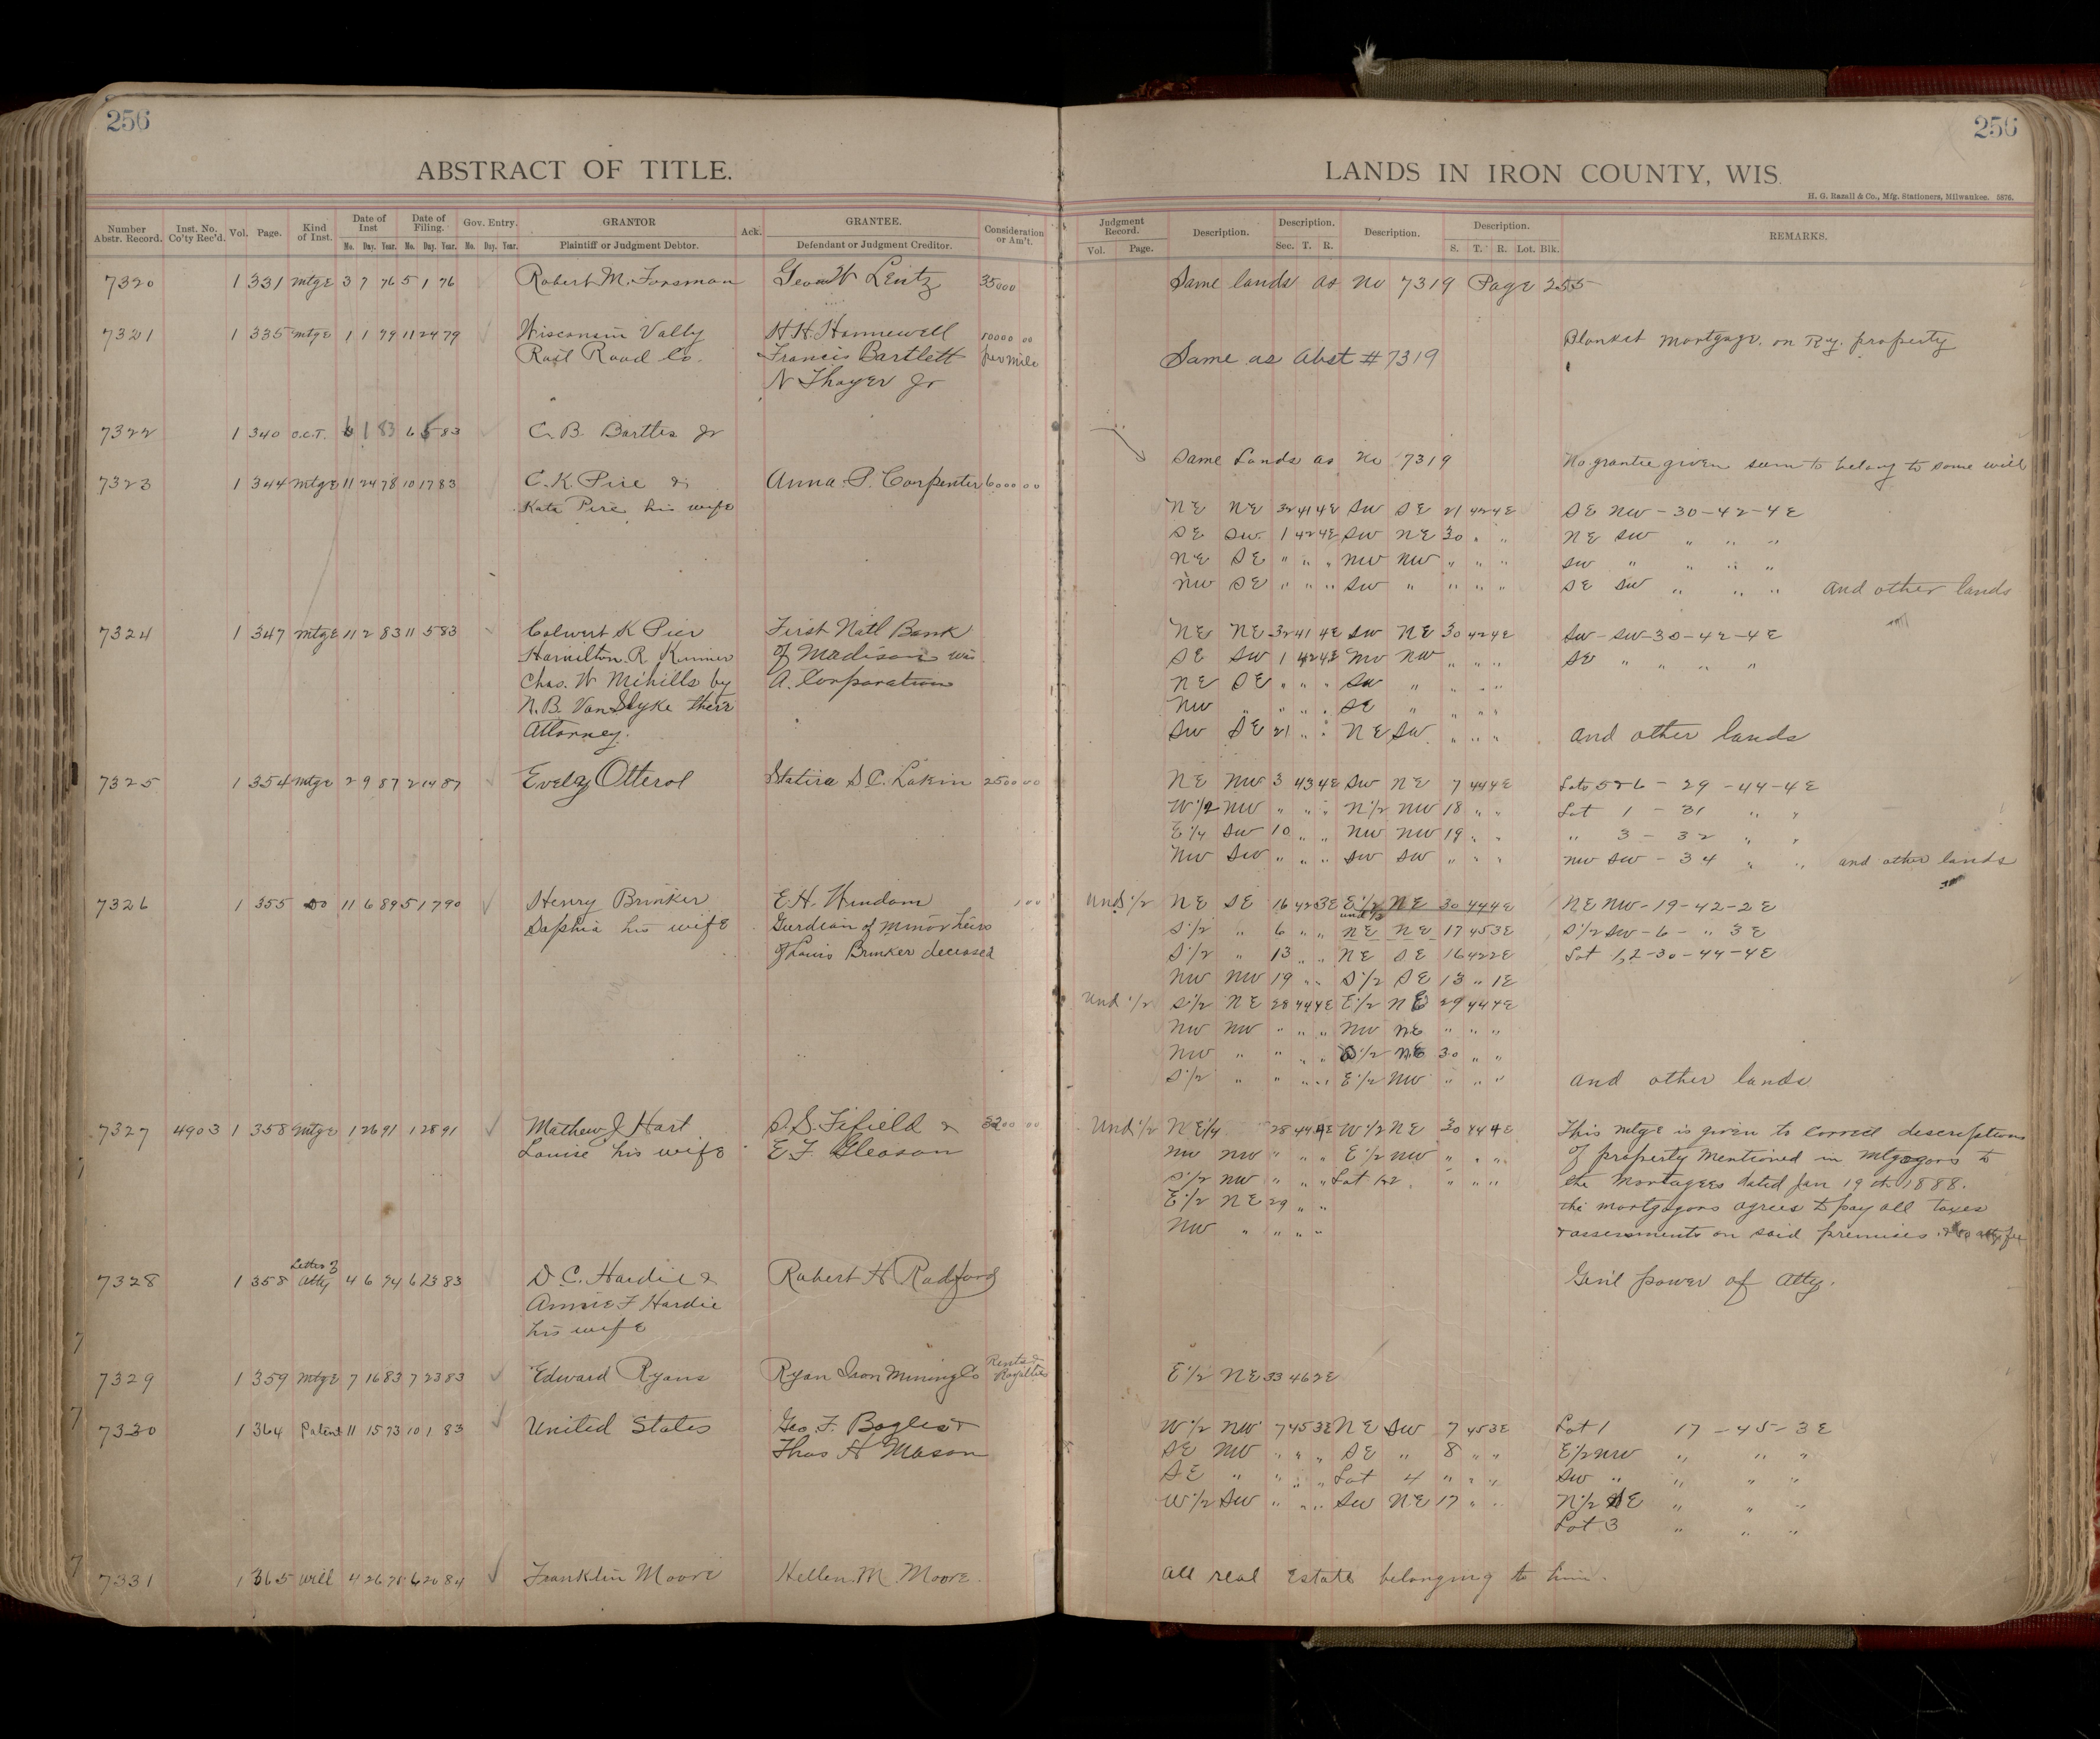 256
256
ABSTRACT OF TITLE.
LANDS IN IRON COUNTY, WIS.
H. G. Razall & Co., Mfg. Stationers, Milwaukee. 5876.
Number Abstr. Record. Inst. No. Co'ty Rec'd. Vol. Page. Kind of Inst. Date of Inst Mo. Day. Year. Date of Filing. Mo. Day. Year. Gov. Entry. Mo. Day. Year. GRANTOR Plaintiff or Judgment Debtor. Ack. GRANTEE. Defendant or Judgment Creditor. Consideration or Am't.
Judgment Record. Vol. Page. Description. Description. Sec. T. R. Description. Description. S. T. R. Lot. Blk. REMARKS.
7320 1 331 Mtge 3 7 76 5 1 76 Robert M. Forsman Lentz 35000
Same lands as No 7319 Page 255
7321 1 335 Mtge 1 1 79 11 24 79 Wisconsin Vally H.H. Hunnewell 10000 00
Rail Road Co. Francis Bartlett per mile
N Thayer Jr
Blanket Mortgage on Ry. property
Same as Abst # 7319
7322 1 340 O.C.T. 6 1 83 6 5 83 C. B. Jr
Same Lands as No 7319 No grantee given seem to belong to some will
7323 1 344 Mtge 11 24 78 10 17 83 C. K. Pire & Anna P. Carpenter 6000 00
Kate Pire his wife
NE NE 32 41 4E SW SE 21 42 4E SE NW - 30 - 42 - 4E
SE SW 1 42 4E SW NE 30 " " NE SW " " "
NE SE " " " NW NW " " " SW " " " "
NW SE " " " SW " " " " SE SW " " " and other lands
7324 1 347 Mtge 11 2 83 11 5 83 Colwert K Pier First Natl Bank
Hamilton R of Madison Wis
Chas. W Mihills by A. Corporation
N. B. Van Slyke their
Attorney.
NE NE 32 41 4E SW NE 30 42 4E SW - SW - 30 - 42 - 4E
SE SW 1 42 4E NW NW " " " SE " " " "
NE SE " " " SW " " " "
NW " " " " SE " " " "
SW SE 21 " " NE SW " " " and other lands
7325 1 354 Mtge 2 9 87 2 14 87 Otterol Statira S C. Lakin 2500 00
NE NW 3 43 4E SW NE 7 44 4E Lots 5 & 6 - 29 - 44 - 4E
W 1/2 NW " " " N 1/2 NW 18 " " Lot 1 - 31 " "
E 1/4 SW 10 " " NW NW 19 " " " 3 - 32 " "
NW SW " " " SW SW " " " NW SW - 34 " " and other lands
7326 1 355 11 6 89 5 17 90 Henry Brinker E. H. Windom 1 00
Sophia his wife Gurdian of minor heirs
of Louis Brinker deceased
Und 1/2 NE SE 16 42 3E E 1/2 NE 30 44 4E NE NW - 19 - 42 - 2E
und 1/2
S 1/2 " 6 " " NE NE 17 45 3E S 1/2 SW - 6 - " 3E
S 1/2 " 13 " " NE SE 16 42 2E Lot 1,2 - 30 - 44 - 4E
NW NW 19 " " S 1/2 SE 13 " 1E
Und 1/2 S 1/2 NE 28 44 4E E 1/2 NE 29 44 4E
NW NW " " " NW NE " " "
NW " " " " S 1/2 NE 30 " "
S 1/2 " " " " E 1/2 NW " " " and other lands
7327 4903 1 358 Mtge 1 26 91 1 28 91 Mathew J Hart S. S. Fifield & 3200 00
Louise his wife E F. Gleason
Und 1/2 NE 1/4 28 44 4E W 1/2 NE 30 44 4E This Mtge is given to Correct descriptions
NW NW " " " E 1/2 NW " " " of property mentioned in Mtgagors to
S 1/2 NW " " " Lot 1&2 " " " the Mortagees dated Jan 19th 1888.
E 1/2 NE 29 " " the mortgagors agrees to pay all taxes
NW " " " " & assessments on said premises.
Letter of
7328 1 358 Atty 4 6 74 6 23 83 D. C. Hardie & Robert H Radford
Annie F Hardie
his wife
Genl power of Atty.
7329 1 359 Mtge 7 16 83 7 23 83 Edward Ryans Ryan Iron Mining Co Rents & Royalties
E 1/2 NE 33 46 2E
7330 1 364 Patent 11 15 73 10 1 83 United States Geo. F. &
Thos H Mason
W 1/2 NW 7 45 3E NE SW 7 45 3E Lot 1 17 - 45 - 3E
SE NW " " " SE " 8 " " E 1/2 NW " " "
SE " " " " Lot 4 " " " SW " " " "
W 1/2 SW " " " SW NE 17 " " N 1/2 SE " " "
Lot 3 " " "
7331 1 365 Will 4 26 6 20 84 Franklin Moore Hellen M. Moore.
All real Estate belonging to him.